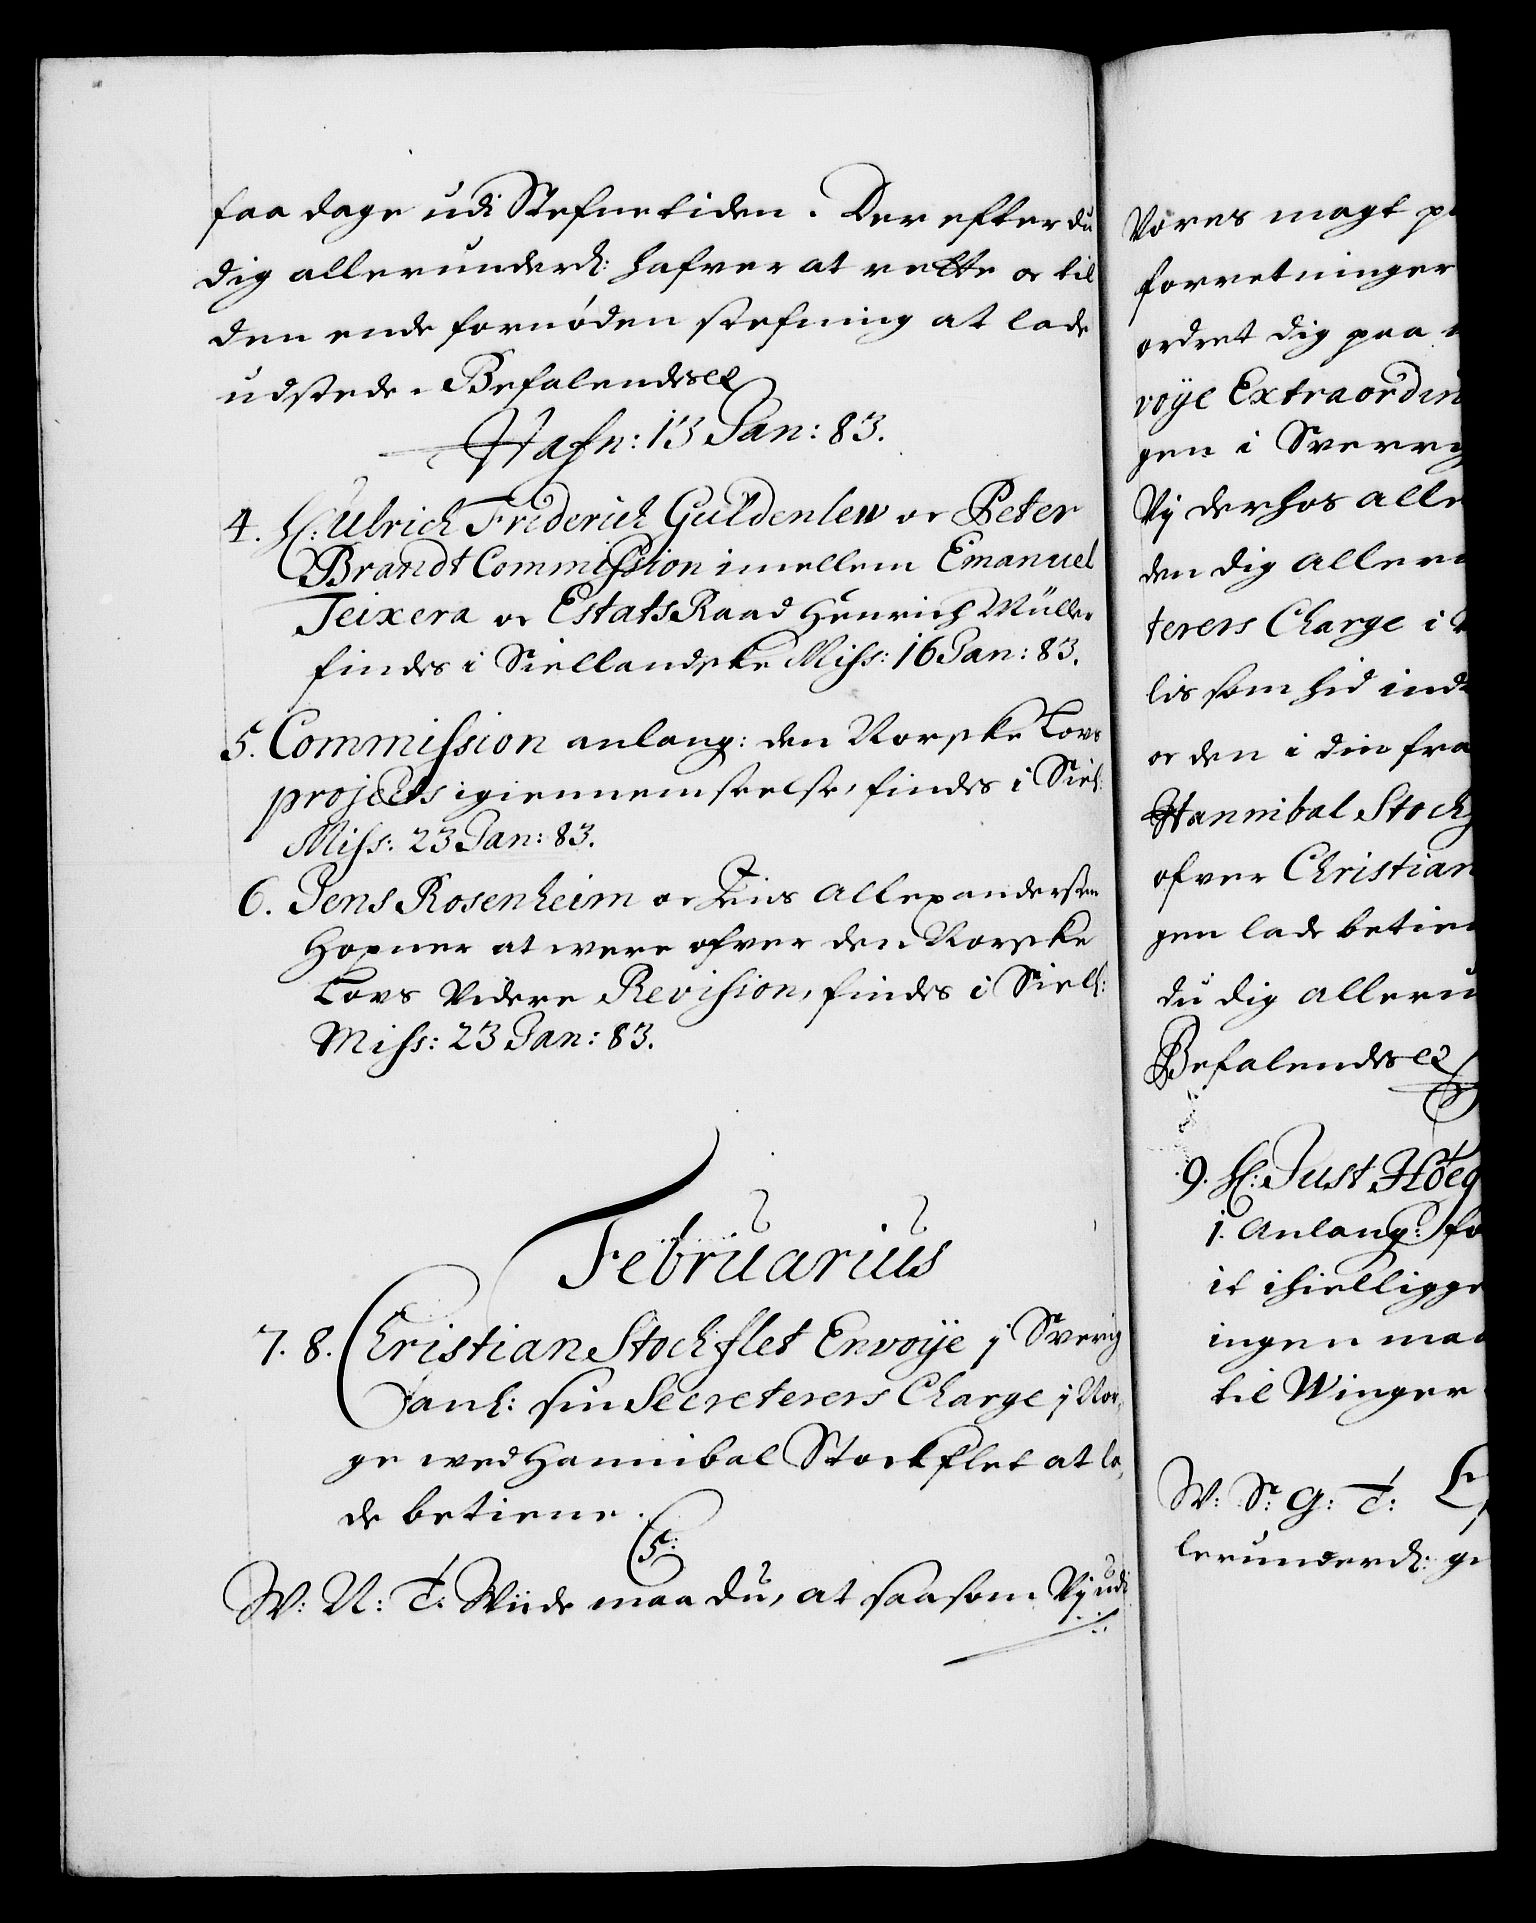 faa dage udi Stefnetiden. Der efter du
dig allerunderd: hafver at rette oc til
den ende fornøden stefning at lade
udstede. Befalendes etc
Hafn: 13 Jan: 83.
4. H: Ulrich Friderich Güldenlew oc Peter
Brandt Commission imellem Emanuel
Teixera oc Estats Raad Henrich Müller
findes i Siellandske Miss: 16 Jan: 83.
5. Commission anlang: den Norske Lovs
projects igiennemseelse, findes i Siel:
Miss: 23 Jan: 83.
6. Jens Rosenheim oc Allexandersen
Hopner at were ofver den Norske
Lovs Videre Revision, findes i Siell:
Miss: 23 Jan: 83.
Februarius
7. 8. Christian Stockflet Envoÿe j Sverig
anl: sin Secreterers Charge j Nor,
ge wed Hannibal Stockflet at la,
de betiene.
5:
W: N: T. Wiide maa du, at saasom Vij udi
Vores magt p
forretninger
ordret dig paa
voÿe Extraordin
gen i Sverrig
Vij derhos alle
den dig alleru
terers Charge i
lis som hid ind
oc den i din fra
Hannibal Stock
ofver Christian
gen lade betien
du dig alleru
Befalendes etc
9. H: Just Høeg
1. Anlang: fo
it ihielligge
ingen maa
til Winger
W: S: G: T:
lerunderd: ge